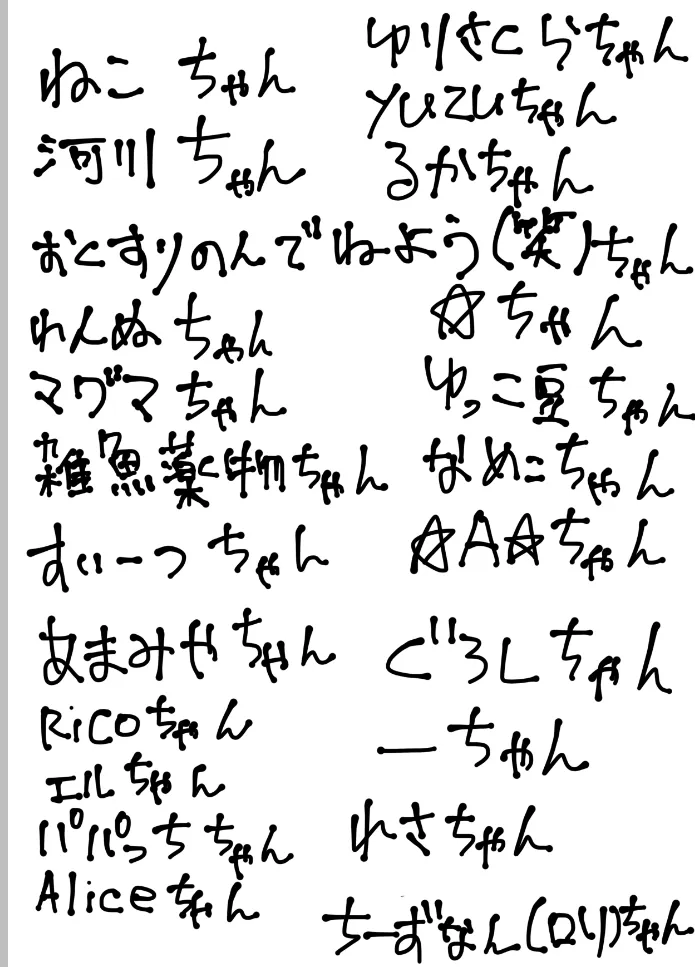 ねこ ちゃん
河川 ちゃん
ゆりさくらちゃん
yuzuちゃん
るかちゃん
おくすりのんでねよう(笑)ちゃん
れんぬ ちゃん
マグマ ちゃん
雑魚薬物ちゃん
すいーつ ちゃん
☆ちゃん
ゆっこ豆 ちゃん
なめこちゃん
☆A☆ちゃん
あまみやちゃん
Ricoちゃん
エルちゃん
パパっち ちゃん
Aliceちゃん
ぐろしちゃん
ーちゃん
れさちゃん
ちーずなん(ロリ)ちゃん